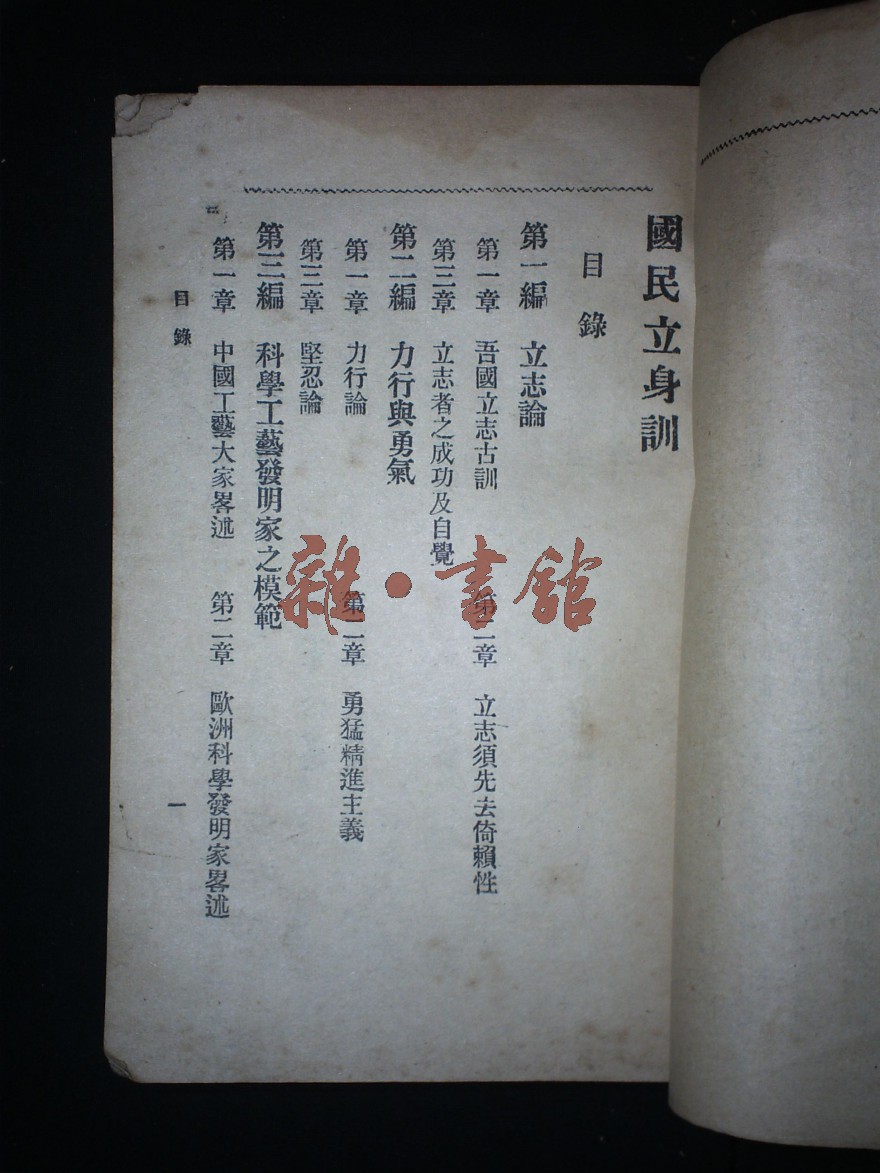 國民立身訓
目錄
第一編 立志論
第一章 吾國立志古訓 第二章 立志須先去倚賴性
第三章 立志者之成功及自覺
第二編 力行與勇氣
第一章 力行論 第二章 勇猛精進主義
第三章 堅忍論
第三編 科學工藝發明家之模範
第一章 中國工藝大家畧述 第二章 歐洲科學發明家畧述
目錄 一
雜·書館